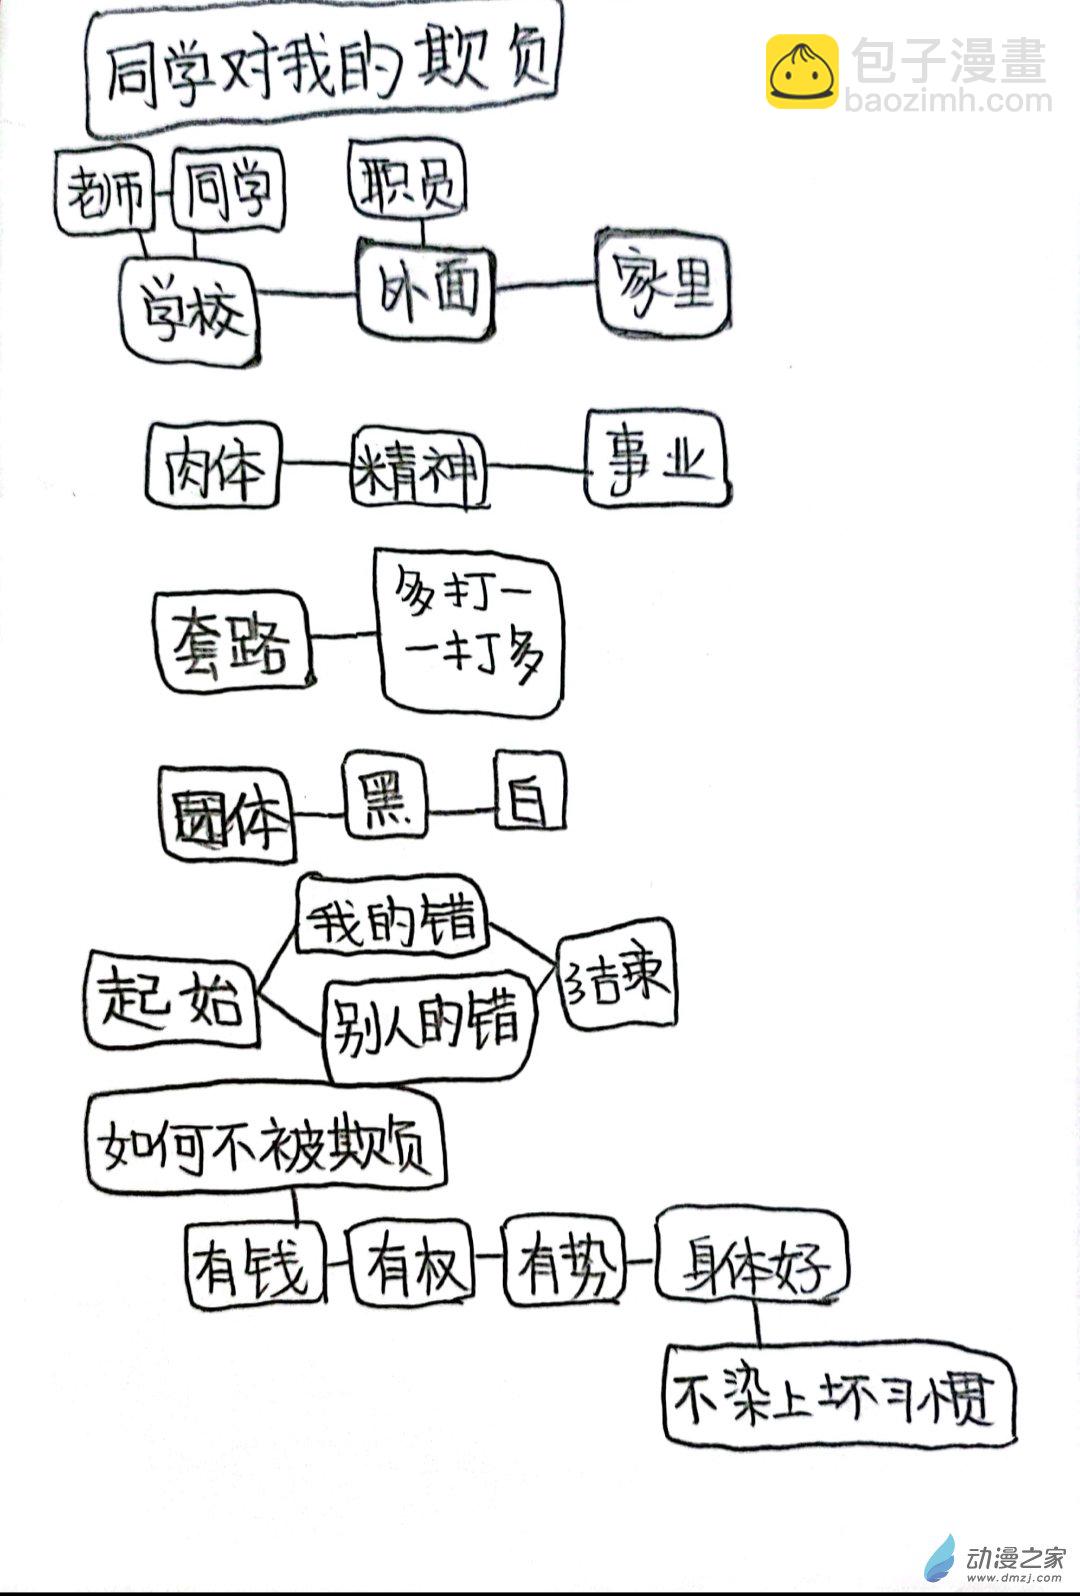 同学对我的欺负
包子漫畫
baozimh.com
老师
同学
职员
学校
外面
家里
肉体
精神
事业
套路
多打一
一打多
团体
黑
白
起始
我的错
别人的错
结束
如何不被欺负
有钱
有权
有势
身体好
不染上坏习惯
动漫之家
www.dmzj.com